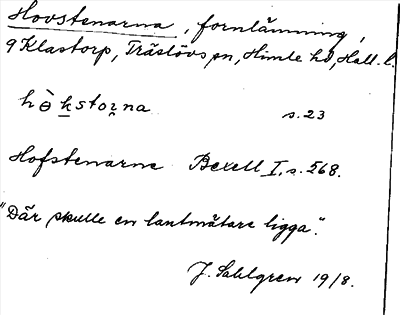 Hovstenarna, fornlämning,
9 Klastorp, Träslövs sn, Himle hd, Hall. l.
hɵ̀kstoṛna s. 23
Hofstenarne Bexell I, s. 568.
"Där skulle en lantmätare ligga".
J. Sahlgren 19/8.